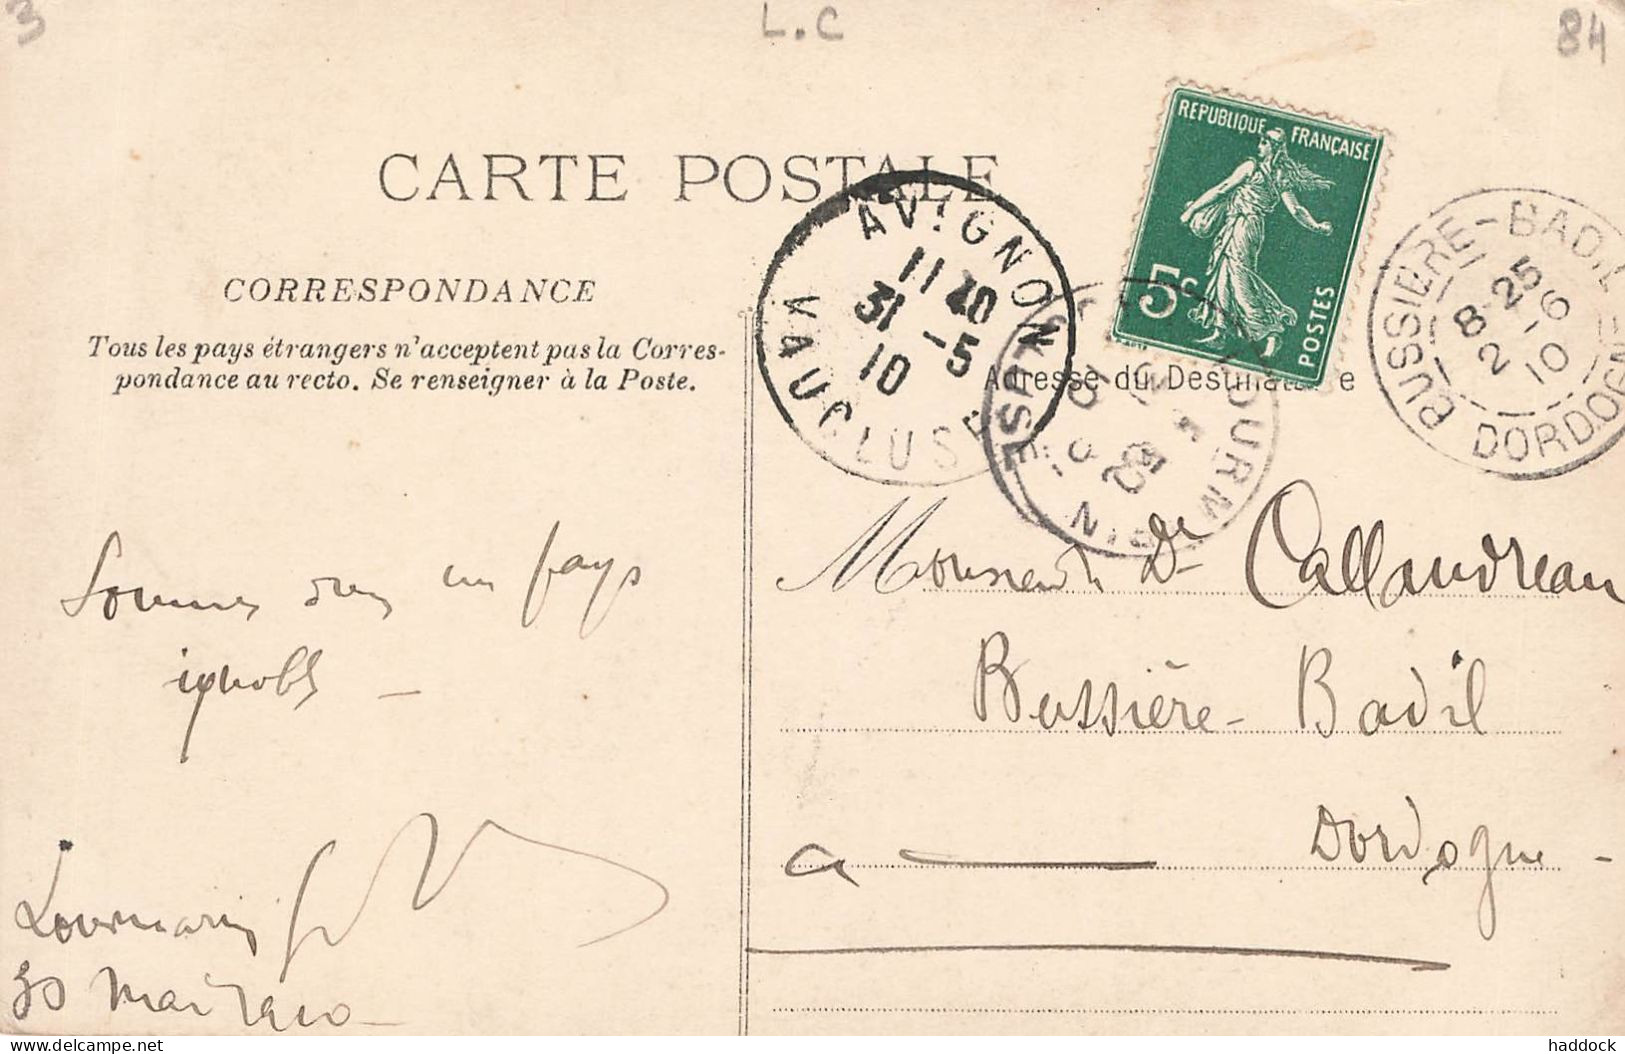 3
L.C
84
CARTE POSTALE
REPUBLIQUE FRANÇAISE
5c
POSTES
AVIGNON
11 20
31 -5
10
VAUCLUSE
BUSSIÈRE-BADIL
8-25
2 -6
10
DORDOGNE
CORRESPONDANCE
Tous les pays étrangers n'acceptent pas la Corres-
pondance au recto. Se renseigner à la Poste.
Adresse du Destinataire
Sommes dans un pays
ignoble —
Lourmarin
30 Mai 1910 —
Monsieur le Dr Callandreau
Bussière-Badil
à — Dordogne -
delcampe.net
haddock